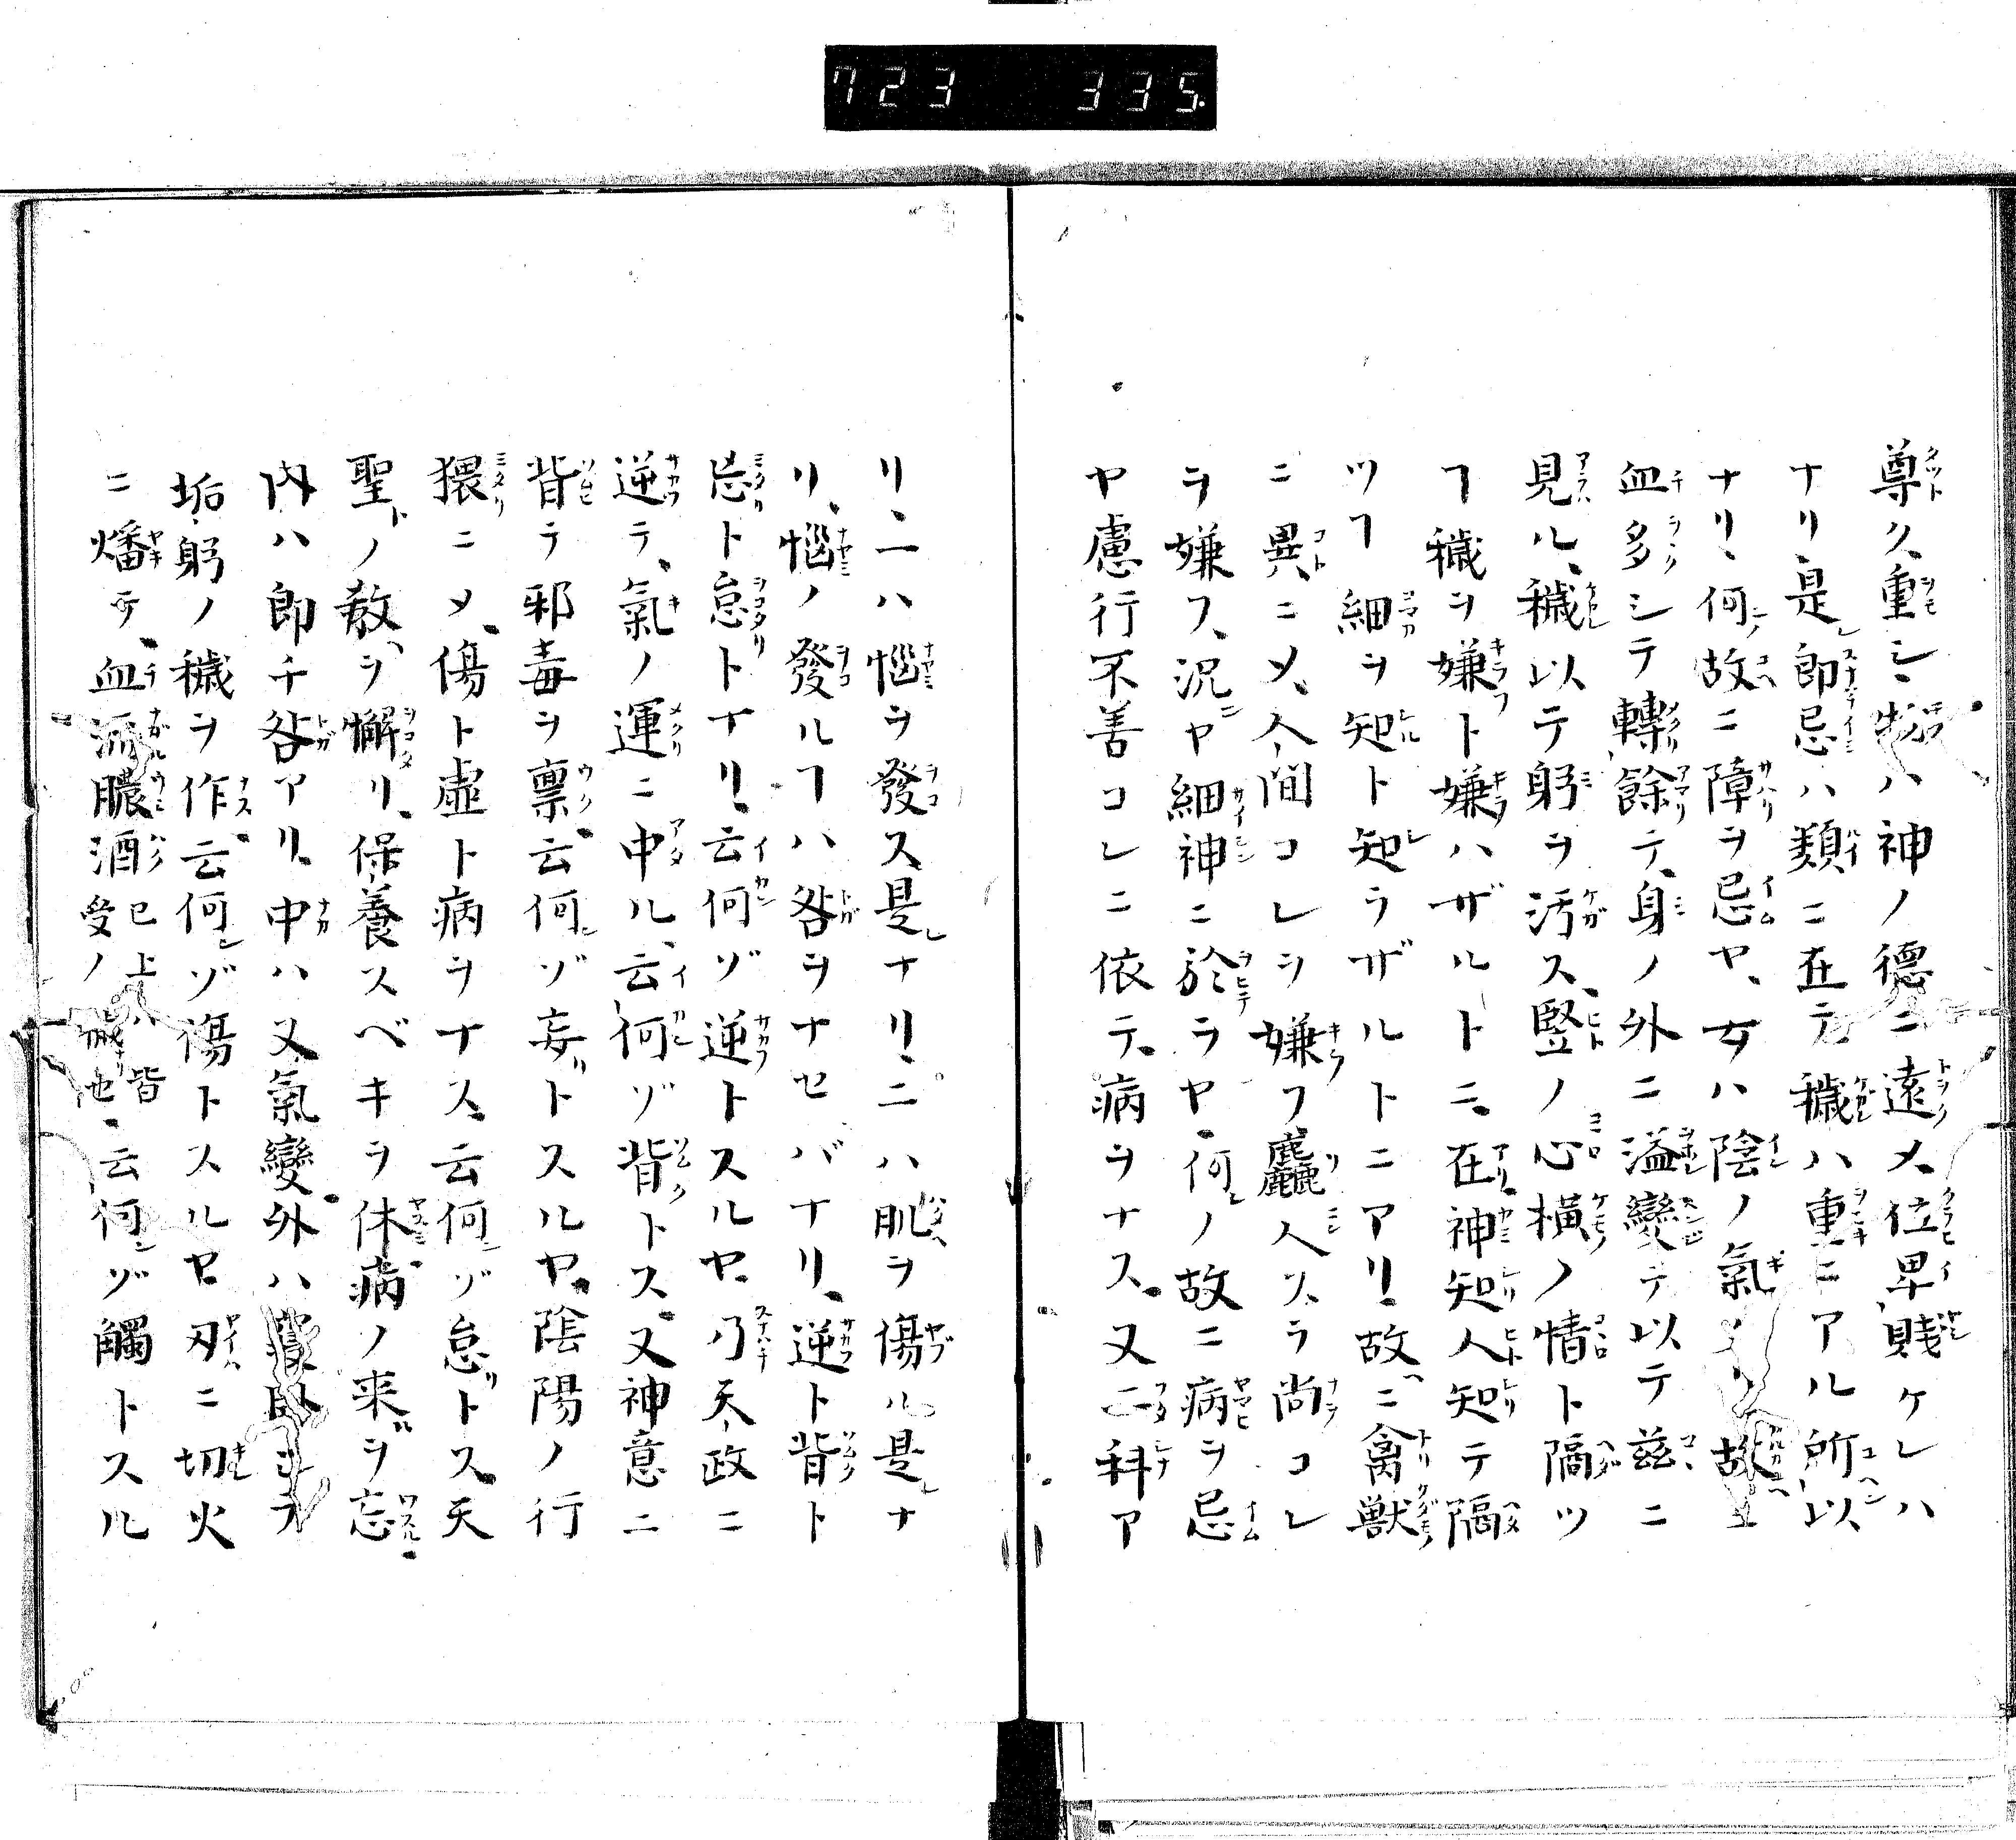 723 335.
尊ク重シ物ハ神ノ德ニ遠メ位卑賤ケレハ
ナリ是即忌ハ類ニ在テ穢ハ重ニアル所以
ナリ、何故ニ障ヲ忌ヤ、女ハ陰ノ氣 故
血多シテ轉餘テ、身ノ外ニ溢變テ以テ茲ニ
見ル、穢以テ躬ヲ汚ス、竪ノ心横ノ情ト隔ツ
ヿ穢ヲ嫌ト嫌ハザルトニ在神知人知テ隔
ツヿ細ヲ知ト知ラザルトニアリ、故ニ禽獸
ニ異ニメ、人間コレヲ嫌フ麤人スラ尚コレ
ヲ嫌フ、況ヤ細神ニ於ヲヤ、何ノ故ニ病ヲ忌
ヤ慮行不善コレニ依テ病ヲナス又二科ア
リ、一ハ惱ヲ發ス是ナリ、二ハ肌ヲ傷ル是ナ
リ、惱ノ發ルヿハ咎ヲナセバナリ、逆ト背ト
忘ト怠トナリ、云何ゾ逆トスルヤ、乃天政ニ
逆テ、氣ノ運ニ中ル、云何ゾ背トス、又神意ニ
背テ邪毒ヲ禀、云何ゾ妄トスルヤ、陰陽ノ行
猥ニメ、傷ト虛ト病ヲナス、云何ゾ怠トス、天
聖ノ敎ヲ懈リ、保養スベキヲ休病ノ来ヲ忘
内ハ即チ咎アリ、中ハ又氣變外ハ寢臥シテ
垢躬ノ穢ヲ作云何ゾ傷トスルヤ刄ニ切火
ニ燔テ、血流膿洒已上ハ皆受ノ 也、云何ゾ觸トスル